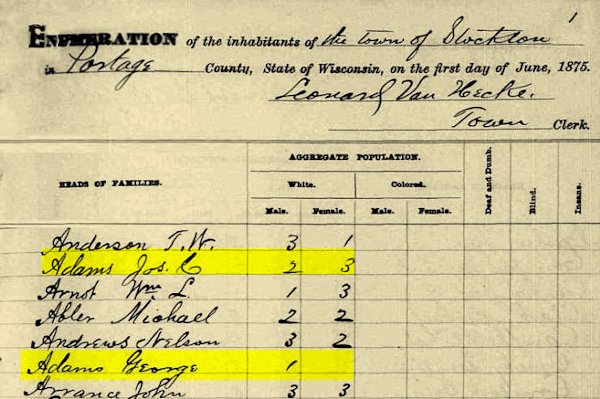 1
ENUMERATION of the inhabitants of the town of Stockton
in Portage County, State of Wisconsin, on the first day of June, 1875.
Leonard Van Hecke.
Town Clerk.
HEADS OF FAMILIES.
AGGREGATE POPULATION.
White. Colored.
Male. Female. Male. Female.
Deaf and Dumb.
Blind.
Insane.
Anderson T. W. 3 1
Adams Jos. C 2 3
Arnot Wm L. 1 3
Abler Michael 2 2
Andrews Nelson 3 2
Adams George 1
Arrance John 3 3